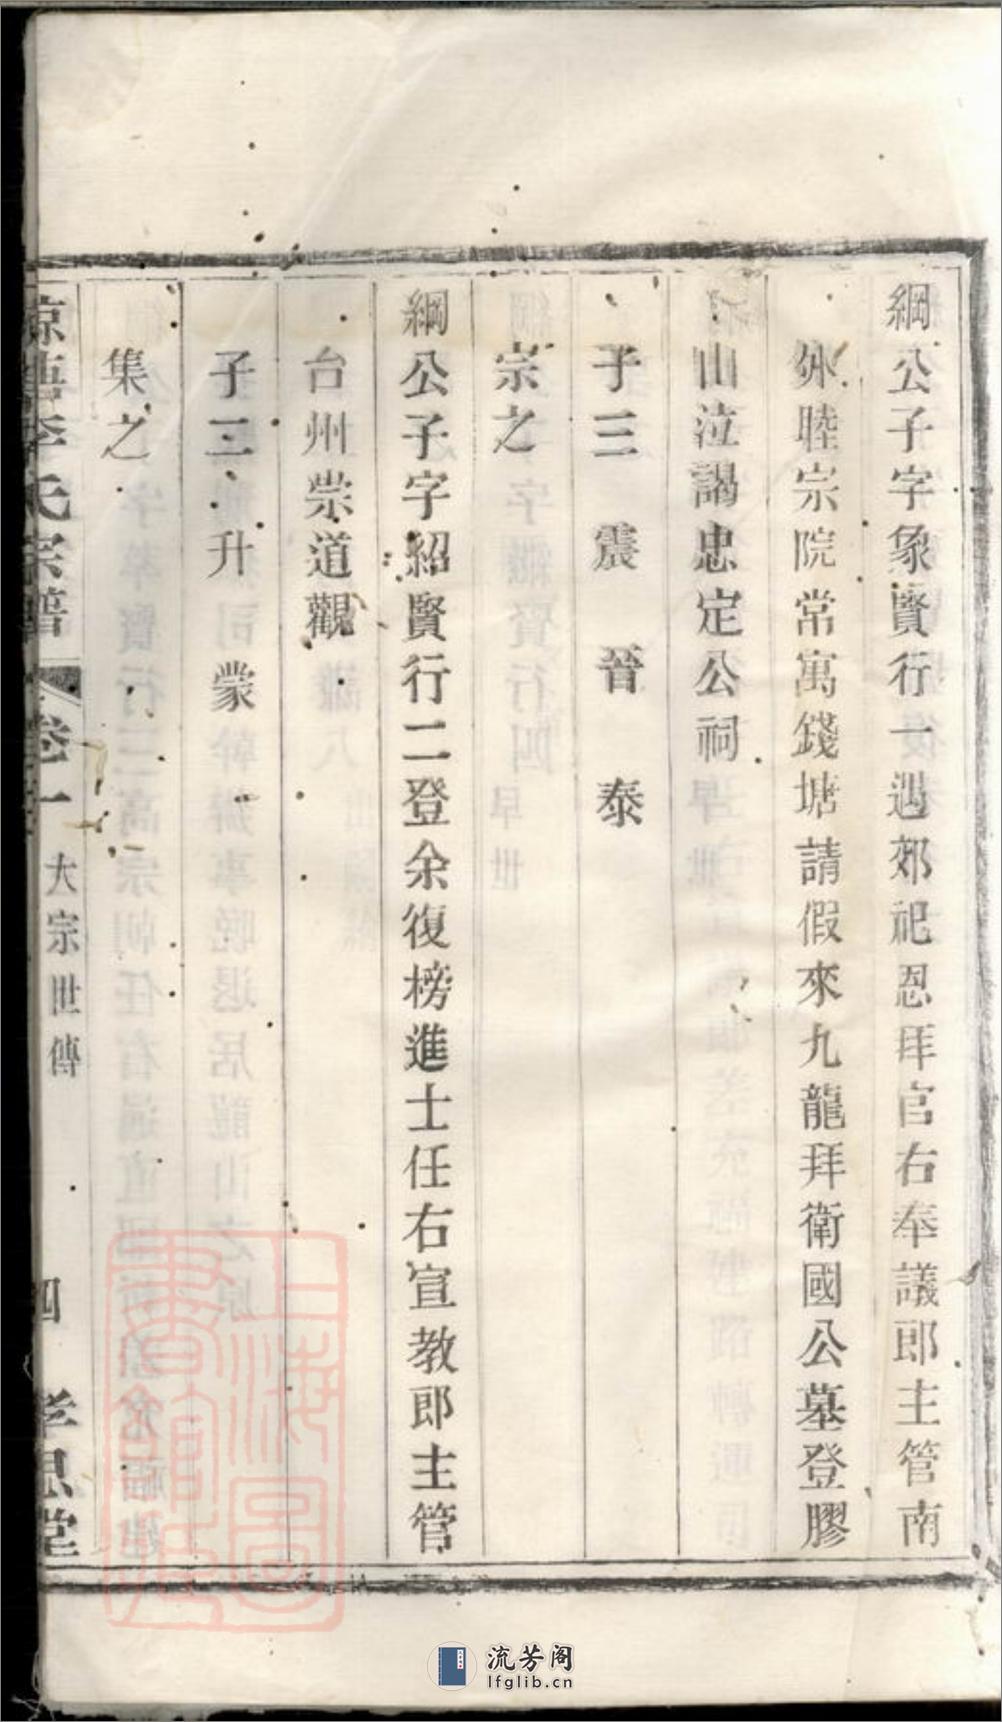 綱公子字象賢行一遇郊祀恩拜官右奉議郎主管南
外睦宗院常寓錢塘請假來九龍拜衛國公墓登膠
山泣謁忠定公祠
子三 震 晉 泰
宗之
綱公子字紹賢行二登余復榜進士任右宣教郎主管
台州崇道觀
子二 升 蒙
集之
李氏宗譜 卷一 大宗世傳 四 孝思堂
上海圖書館藏
流芳阁
lfglib.cn